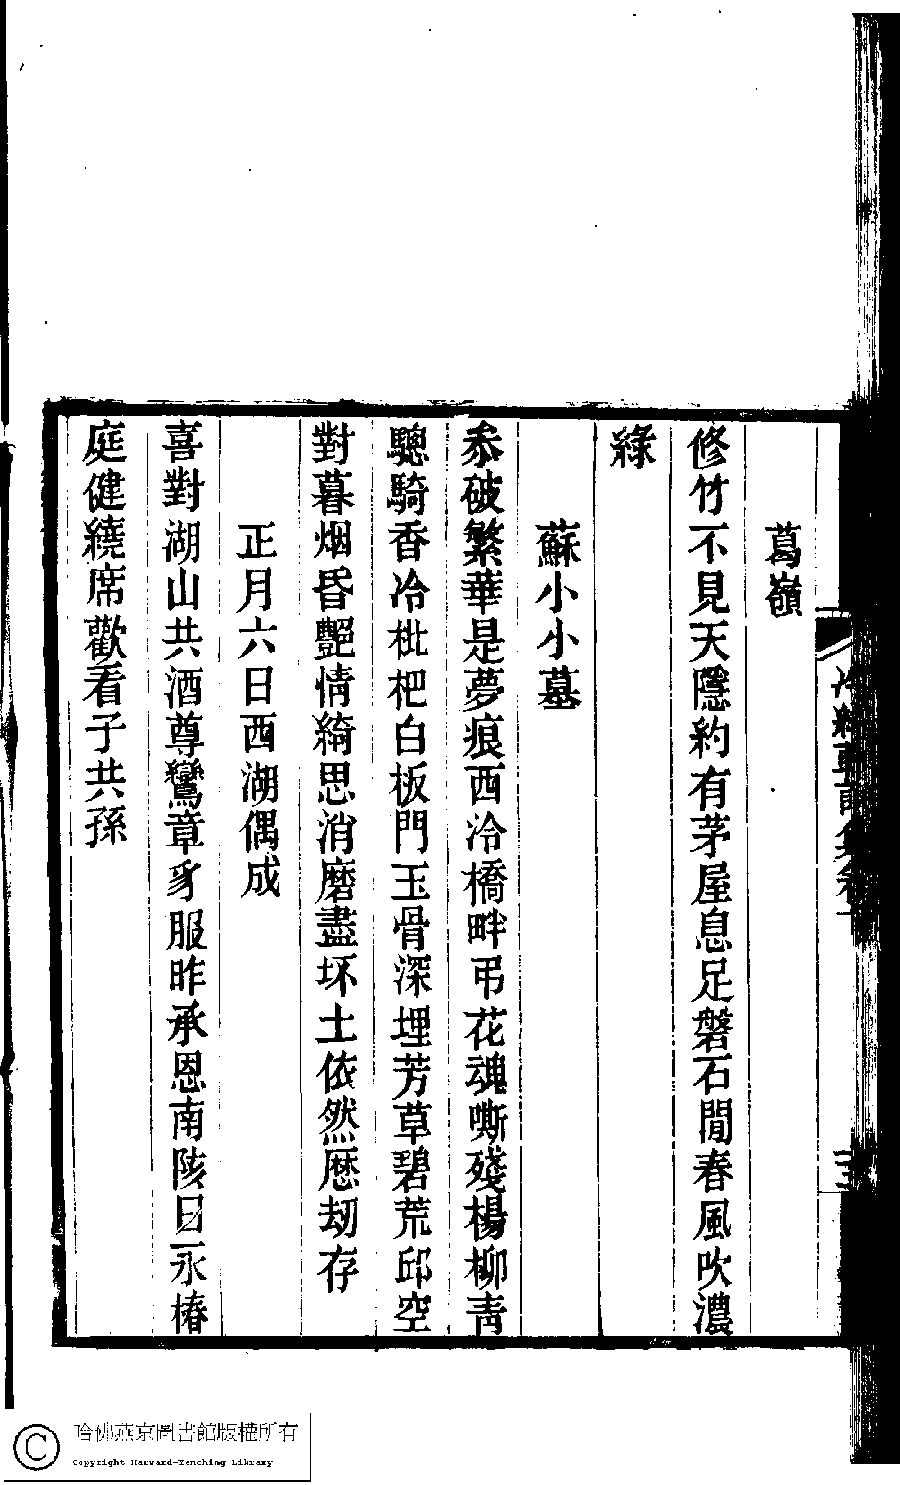 葛嶺
修竹不見天隱約有茅屋息足磐石閒春風吹濃
綠
蘇小小墓
叅破繁華是夢痕西泠橋畔弔花魂嘶殘楊柳靑
驄騎香冷枇杷白板門玉骨深埋芳草碧荒邱空
對暮烟昏豔情綺思消磨盡坏土依然歴刼存
正月六日西湖偶成
喜對湖山共酒尊鸞章豸服昨承恩南陔日永椿
庭健繞席歡看子共孫
哈佛燕京圖書館版權所有
Copyright Harvard-Yenching Library